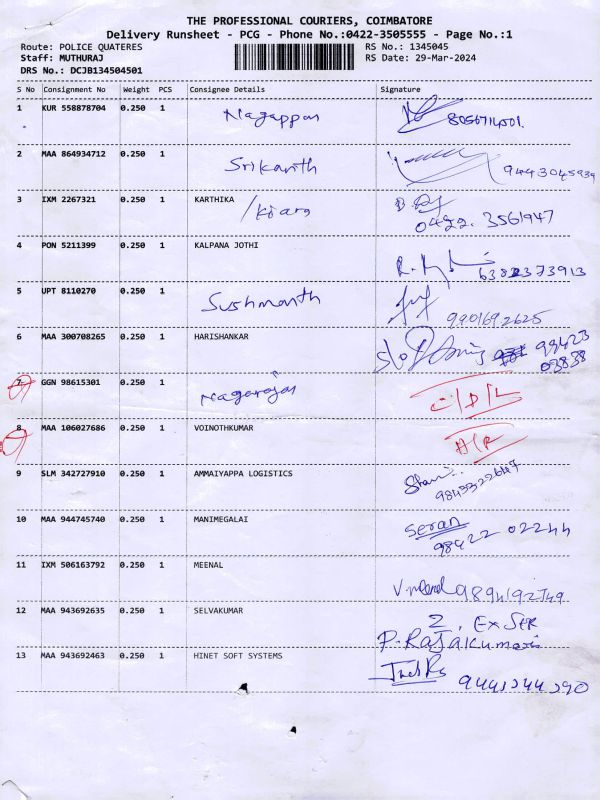 THE PROFESSIONAL COURIERS, COIMBATORE
Delivery Runsheet - PCG - Phone No.:0422-3505555 - Page No.:1
Route: POLICE QUATERES RS No.: 1345045
Staff: MUTHURAJ RS Date: 29-Mar-2024
DRS No.: DCJB134504501
S No Consignment No Weight PCS Consignee Details Signature
1 KUR 558878704 0.250 1 Nagappan 8056714501
2 MAA 864934712 0.250 1 Srikanth 9443045939
3 IXM 2267321 0.250 1 KARTHIKA
/Kiara 0422. 3561947
4 PON 5211399 0.250 1 KALPANA JOTHI
6382373913
5 UPT 8110270 0.250 1 Sushmanth
9901692625
6 MAA 300708265 0.250 1 HARISHANKAR 99423
03838
7 GGN 98615301 0.250 1 Nagarajan
8 MAA 106027686 0.250 1 VOINOTHKUMAR
9 SLM 342727910 0.250 1 AMMAIYAPPA LOGISTICS
10 MAA 944745740 0.250 1 MANIMEGALAI Seran
98422 02244
11 IXM 506163792 0.250 1 MEENAL
V.meenal
12 MAA 943692635 0.250 1 SELVAKUMAR
P.Rajakumari
13 MAA 943692463 0.250 1 HINET SOFT SYSTEMS